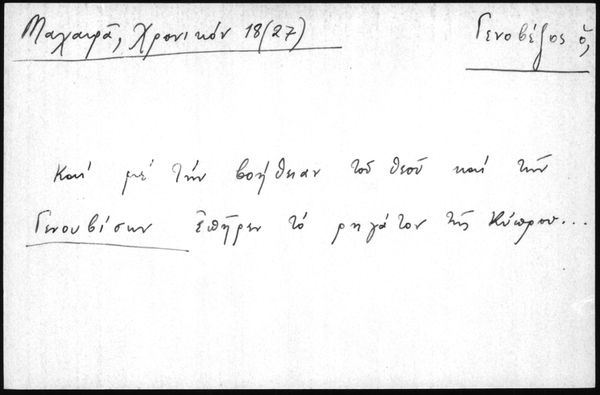 Μαχαιρᾶ, Χρονικόν 18(27)
Γενοβέζος ὁ,
Καί μέ τήν βοήθειαν τοῦ θεοῦ καί τῶν
Γενουβίσων ἐπῆρεν τό ρηγάτον τῆς Κύπρου...